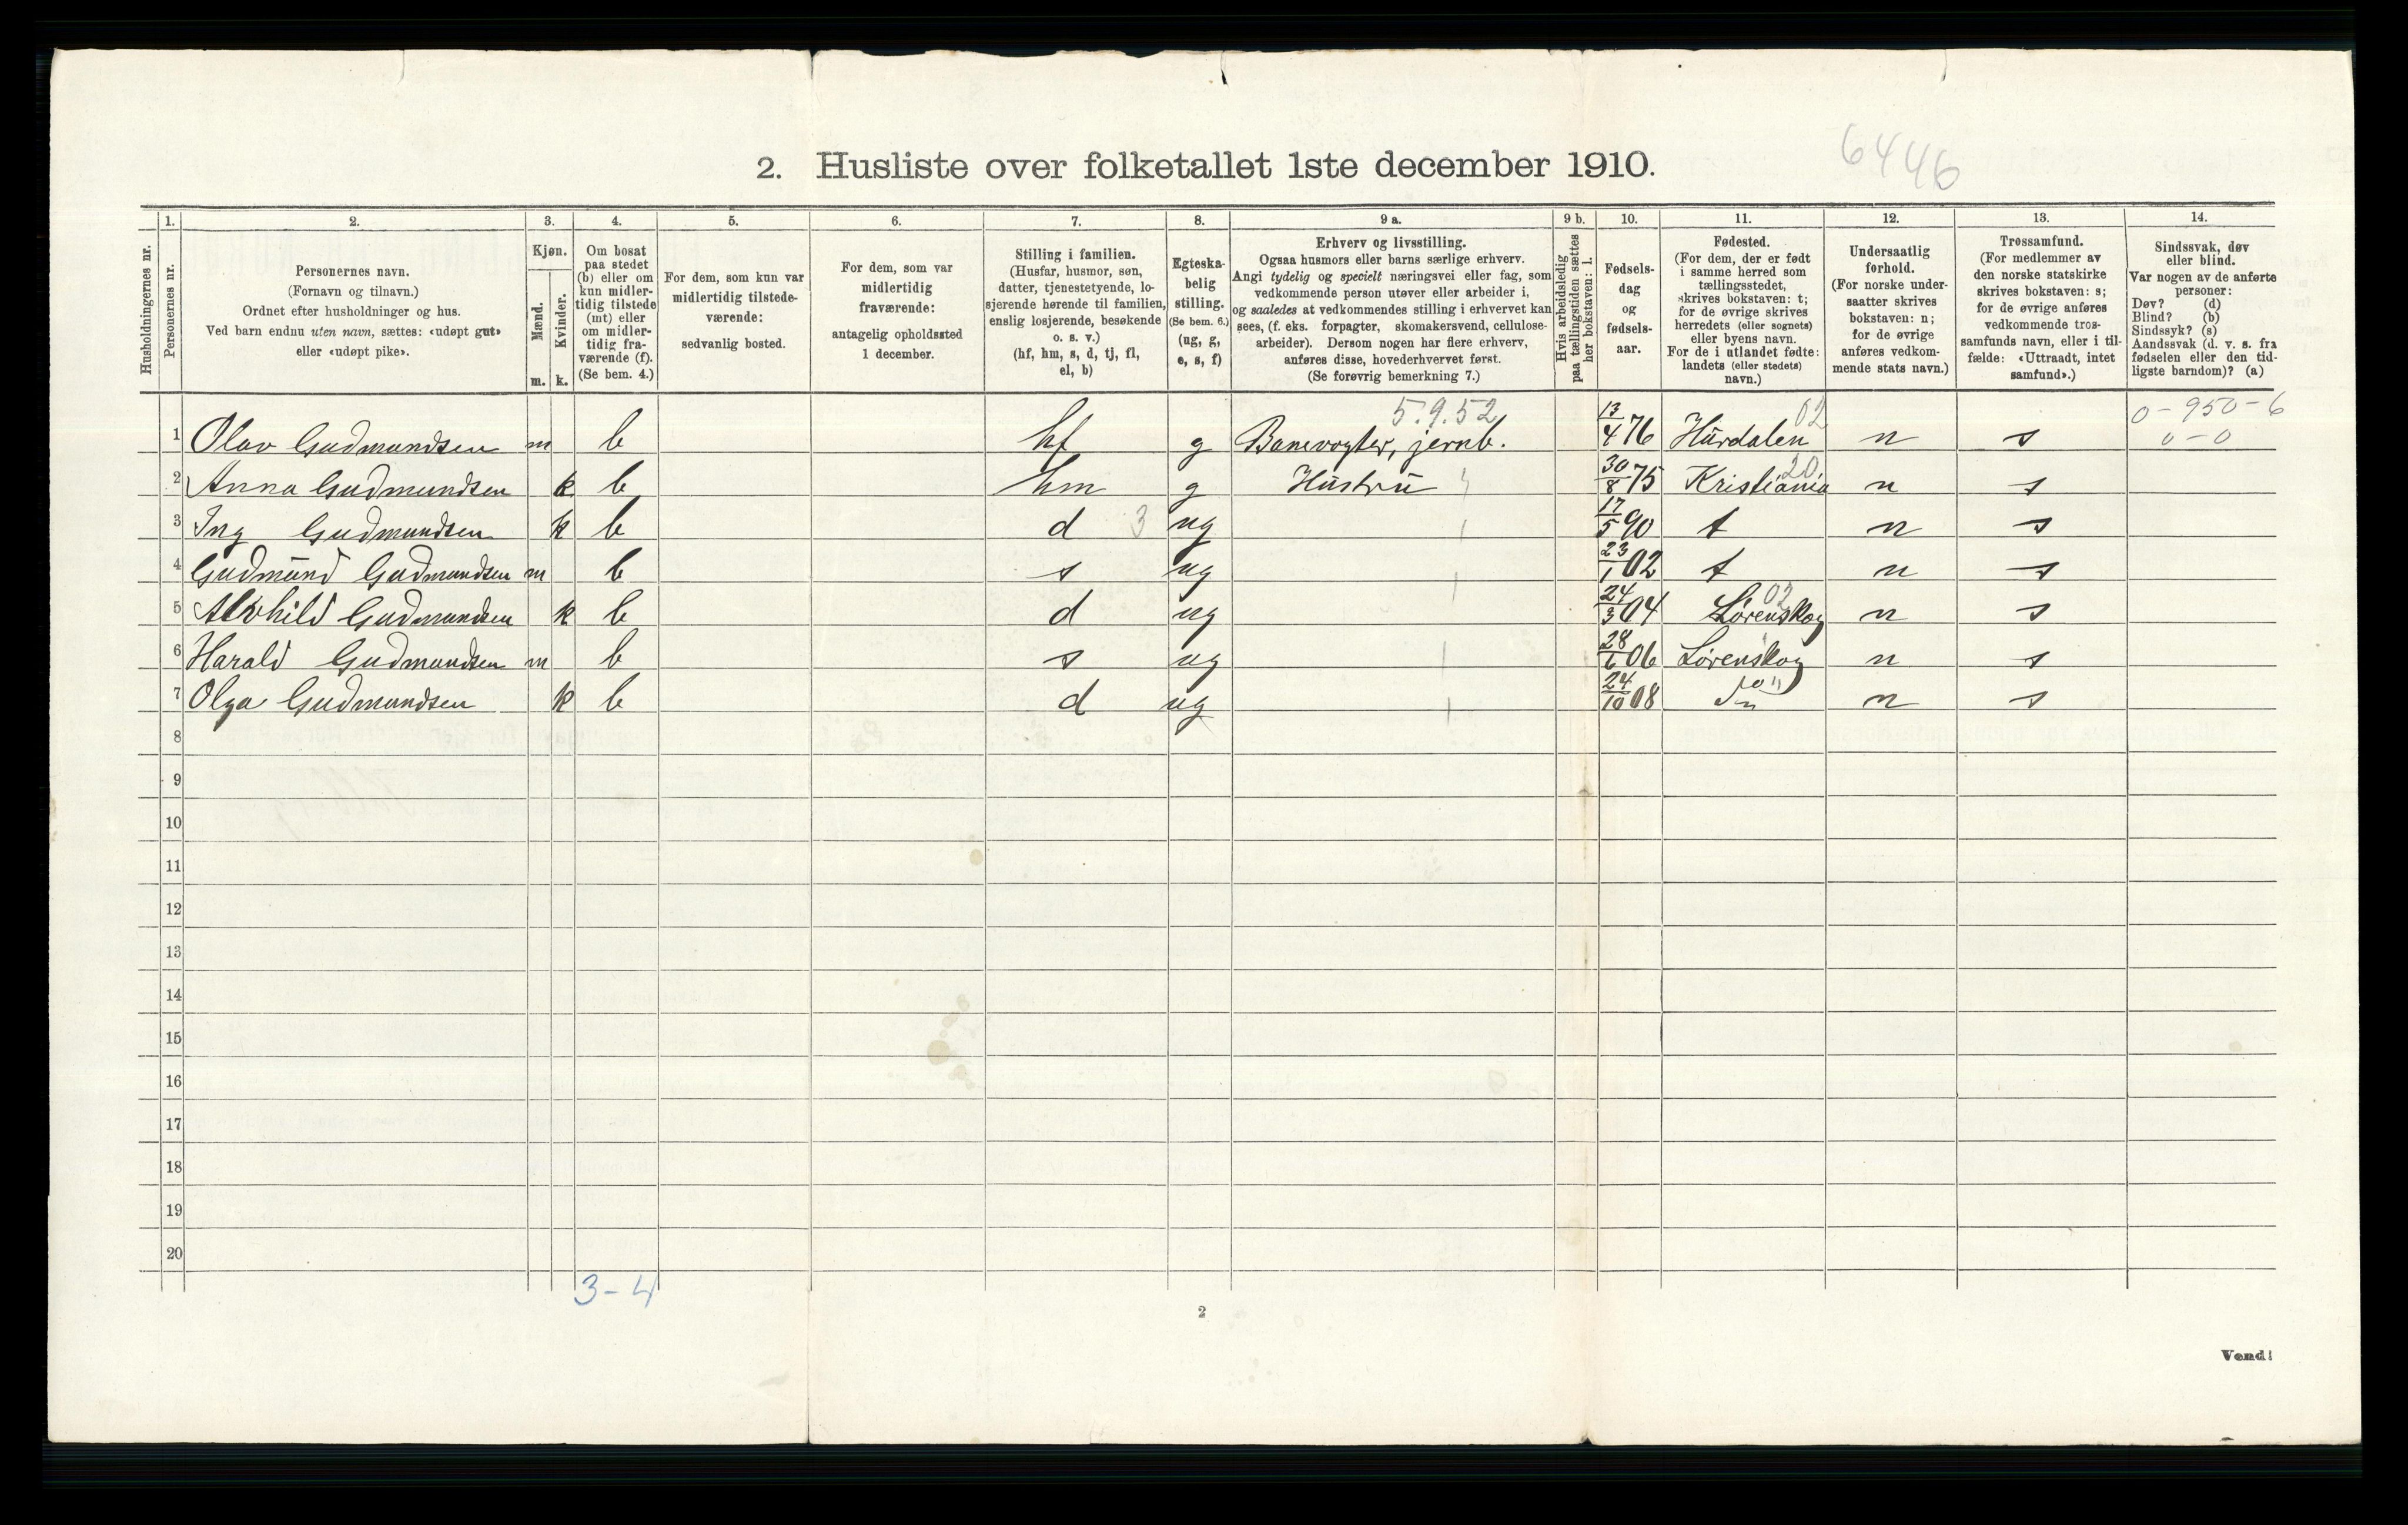 6446
2. Husliste over folketallet 1ste december 1910.
Husholdningernes nr.
1.
Personernes nr.
2.
Personernes navn.
(Fornavn og tilnavn.)
Ordnet efter husholdninger og hus.
Ved barn endnu uten navn, sættes: «udøpt gut»
eller «udøpt pike».
3.
Kjøn.
Mænd.
Kvinder.
m. k.
4.
Om bosat
paa stedet
(b) eller om
kun midler-
tidig tilstede
(mt) eller
om midler-
tidig fra-
værende (f).
(Se bem. 4.)
5.
For dem, som kun var
midlertidig tilstede-
værende:
sedvanlig bosted.
6.
For dem, som var
midlertidig
fraværende:
antagelig opholdssted
1 december.
7.
Stilling i familien.
(Husfar, husmor, søn,
datter, tjenestetyende, lo-
sjerende hørende til familien,
enslig losjerende, besøkende
o. s. v.)
(hf, hm, s, d, tj, fl,
el, b)
8.
Egteska-
belig
stilling.
(Se bem. 6.)
(ug, g,
e, s, f)
9 a.
Erhverv og livsstilling.
Ogsaa husmors eller barns særlige erhverv.
Angi tydelig og specielt næringsvei eller fag, som
vedkommende person utøver eller arbeider i,
og saaledes at vedkommendes stilling i erhvervet kan
sees, (f. eks. forpagter, skomakersvend, cellulose-
arbeider). Dersom nogen har flere erhverv,
anføres disse, hovederhvervet først.
(Se forøvrig bemerkning 7.)
9 b.
Hvis arbeidsledig
paa tællingstiden sættes
her bokstaven: l.
10.
Fødsels-
dag
og
fødsels-
aar.
11.
Fødested.
(For dem, der er født
i samme herred som
tællingsstedet,
skrives bokstaven: t;
for de øvrige skrives
herredets (eller sognets)
eller byens navn.
For de i utlandet fødte:
landets (eller stedets)
navn.)
12.
Undersaatlig
forhold.
(For norske under-
saatter skrives
bokstaven: n;
for de øvrige
anføres vedkom-
mende stats navn.)
13.
Trossamfund.
(For medlemmer av
den norske statskirke
skrives bokstaven: s;
for de øvrige anføres
vedkommende tros-
samfunds navn, eller i til-
fælde: «Uttraadt, intet
samfund».)
14.
Sindssvak, døv
eller blind.
Var nogen av de anførte
personer:
Døv? (d)
Blind? (b)
Sindssyk? (s)
Aandssvak (d. v. s. fra
fødselen eller den tid-
ligste barndom)? (a)
5.9.52 02 0-950-6
1 Olav Gudmundsen m b hf g Banevogter, jernb. 13/4 76 Hurdalen n s 0-0
20
2 Anna Gudmundsen k b hm g Hustru 30/8 75 Kristiania n s
3 Ing Gudmundsen k b d 3 ug 17/5 90 t n s
4 Gudmund Gudmundsen m b s ug 23/1 02 t n s
02
5 Gudmundsen k b d ug 24/3 04 Lørenskog n s
6 Harald Gudmundsen m b s ug 28/6 06 Lørenskog n s
7 Olga Gudmundsen k b d ug 24/10 08 n s
8
9
10
11
12
13
14
15
16
17
18
19
20
3-4
2
Vend!